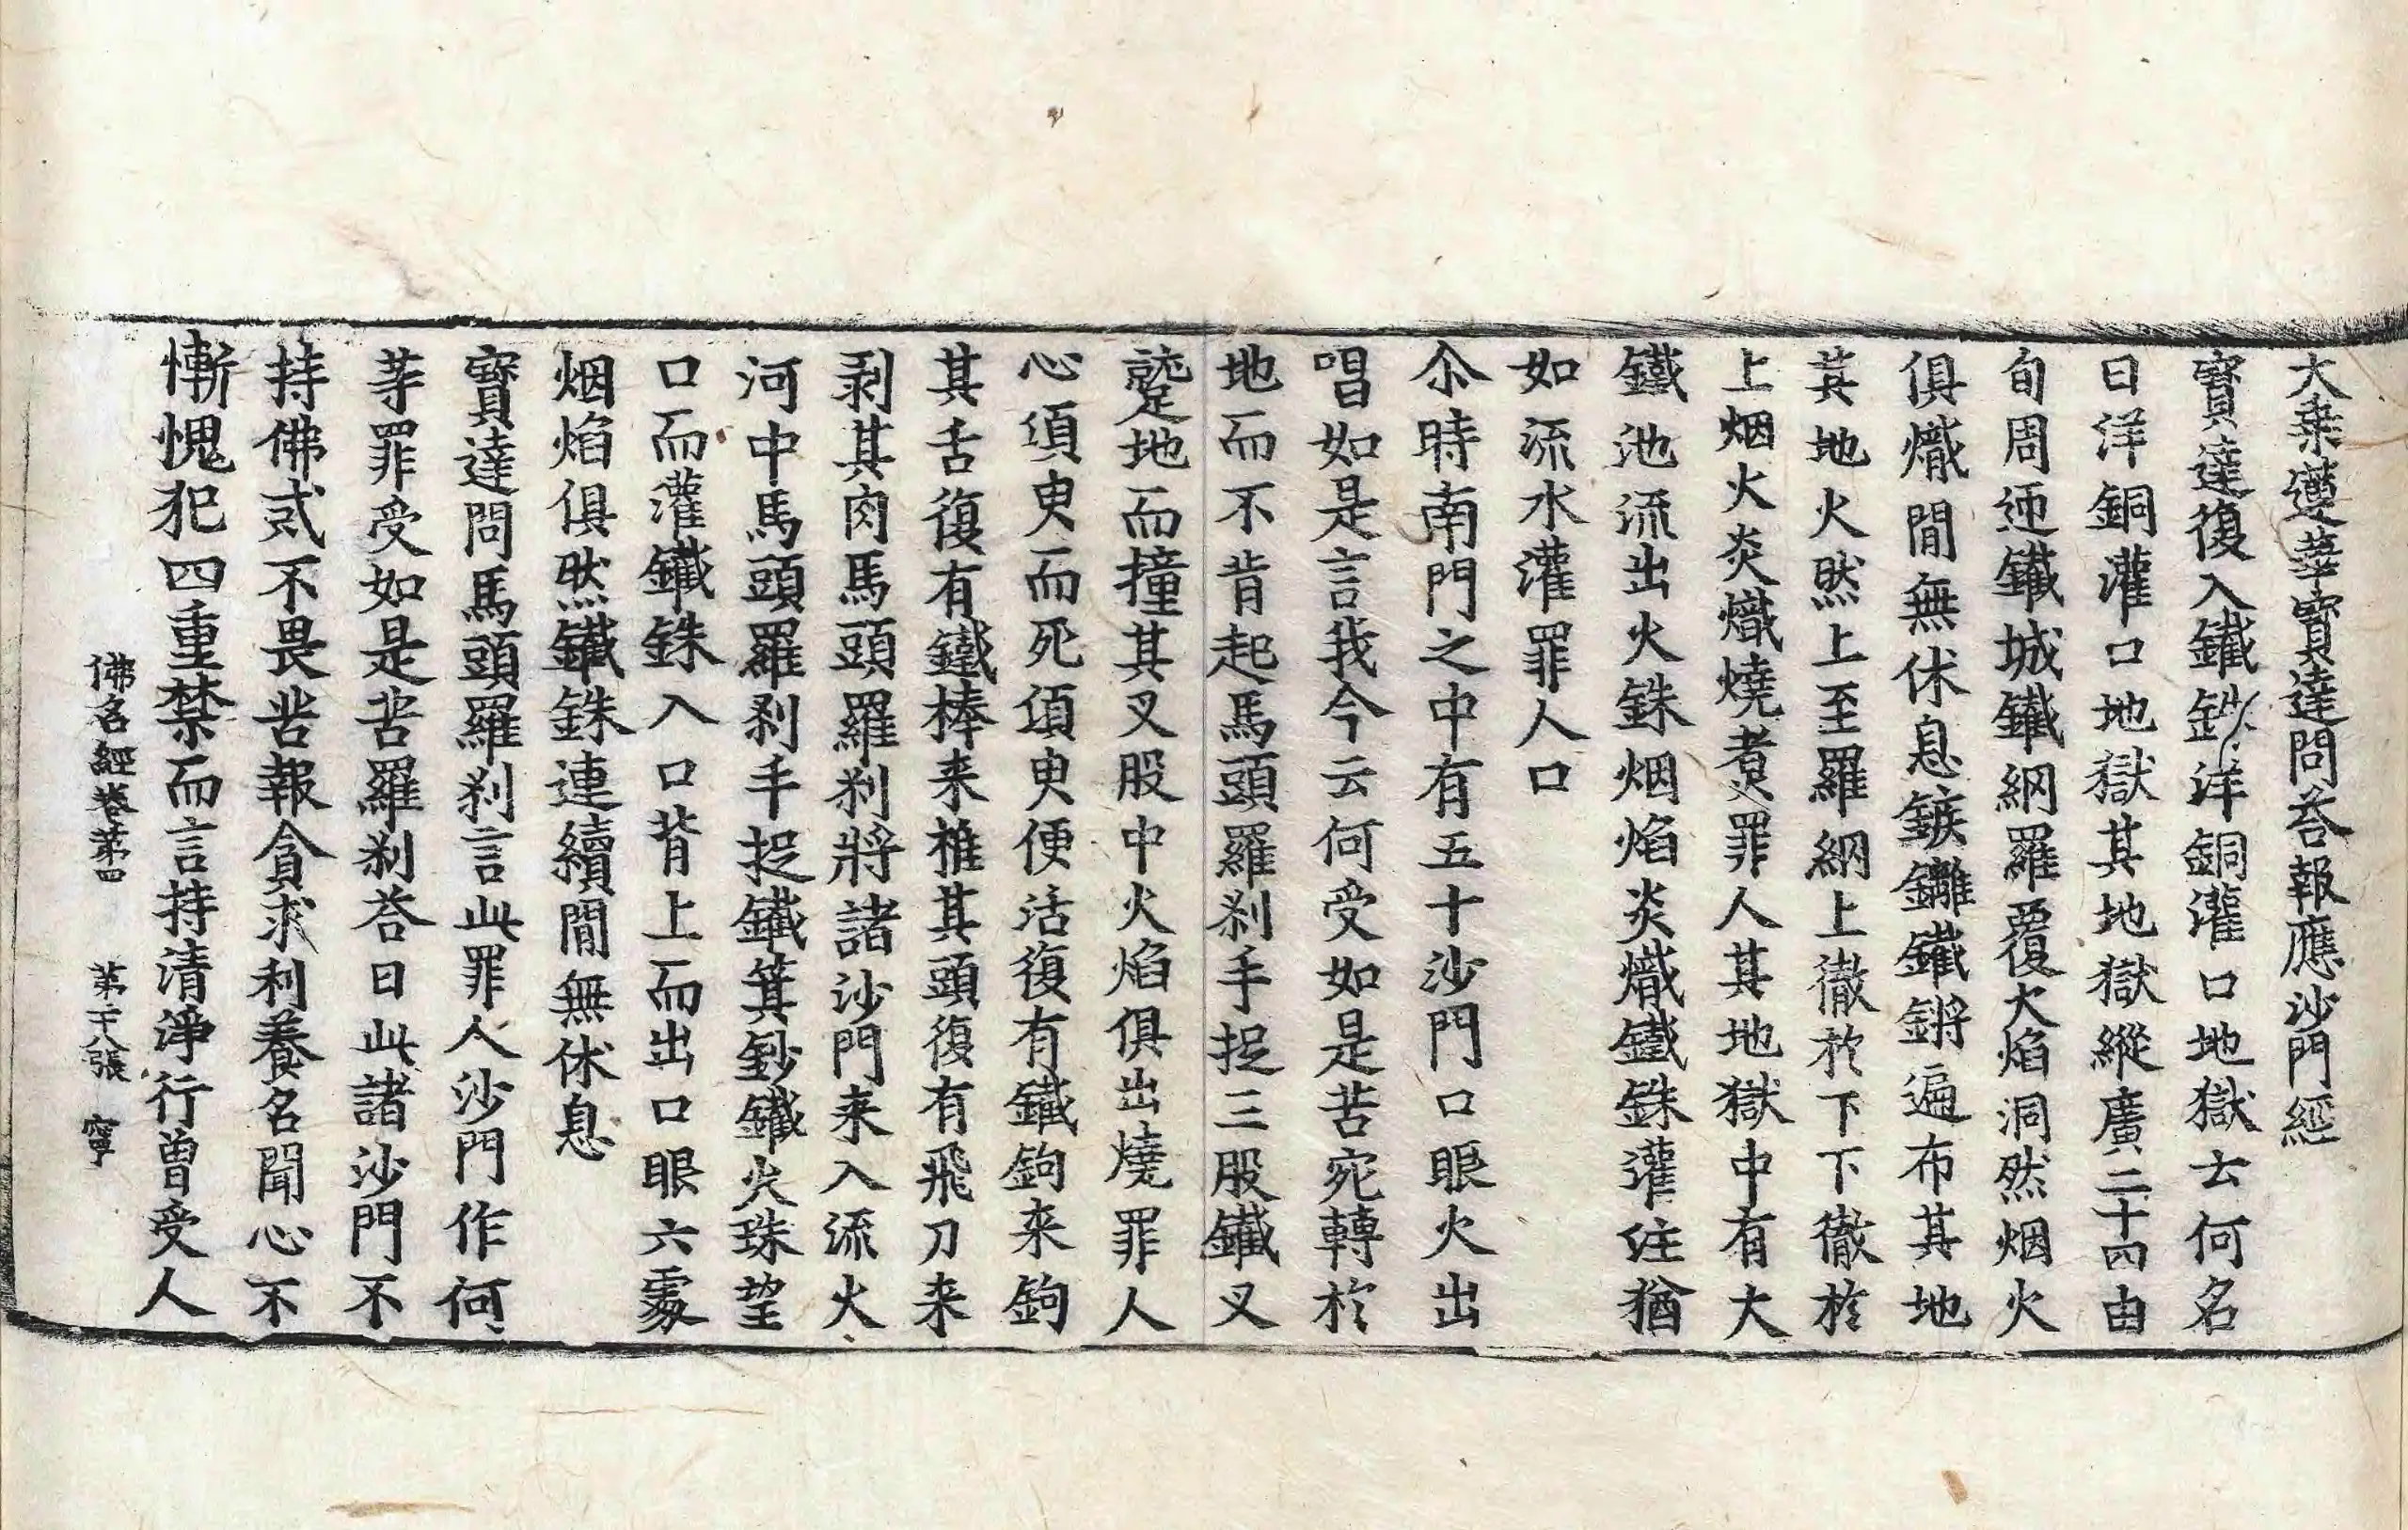 大乗蓮華寳達問荅報應沙門經
寳達復入鐵鈔洋銅灌口地獄云何名
曰洋銅灌口地獄其地獄縱廣二十四由
旬周迊鐵城鐵網羅覆火焰洞然烟火
俱熾間無休息鏃鑽鐵鏘遍布其地
其地火然上至羅網上徹於下下徹於
上烟火炎熾燒煮罪人其地獄中有大
鐵池流出火銖烟焰炎熾鐵銖灌注猶
如流水灌罪人口
尒時南門之中有五十沙門口眼火出
唱如是言我今云何受如是苦宛轉於
地而不肯起馬頭羅刹手捉三股鐵叉
躄地而撞其叉股中火焰俱出燒罪人
心須臾而死須臾便活復有鐵鉤来鉤
其舌復有鐵棒来椎其頭復有飛刀来
剥其肉馬頭羅刹將諸沙門来入流火
河中馬頭羅刹手捉鐵箕鈔鐵火珠望
口而灌鐵銖入口背上而出口眼六處
烟焰俱然鐵銖連續間無休息
寳達問馬頭羅刹言此罪人沙門作何
荨罪受如是苦羅刹荅曰此諸沙門不
持佛戒不畏苦報貪求利養名聞心不
慚愧犯四重禁而言持清淨行曾受人
佛名經卷第四 第二十八張 寧